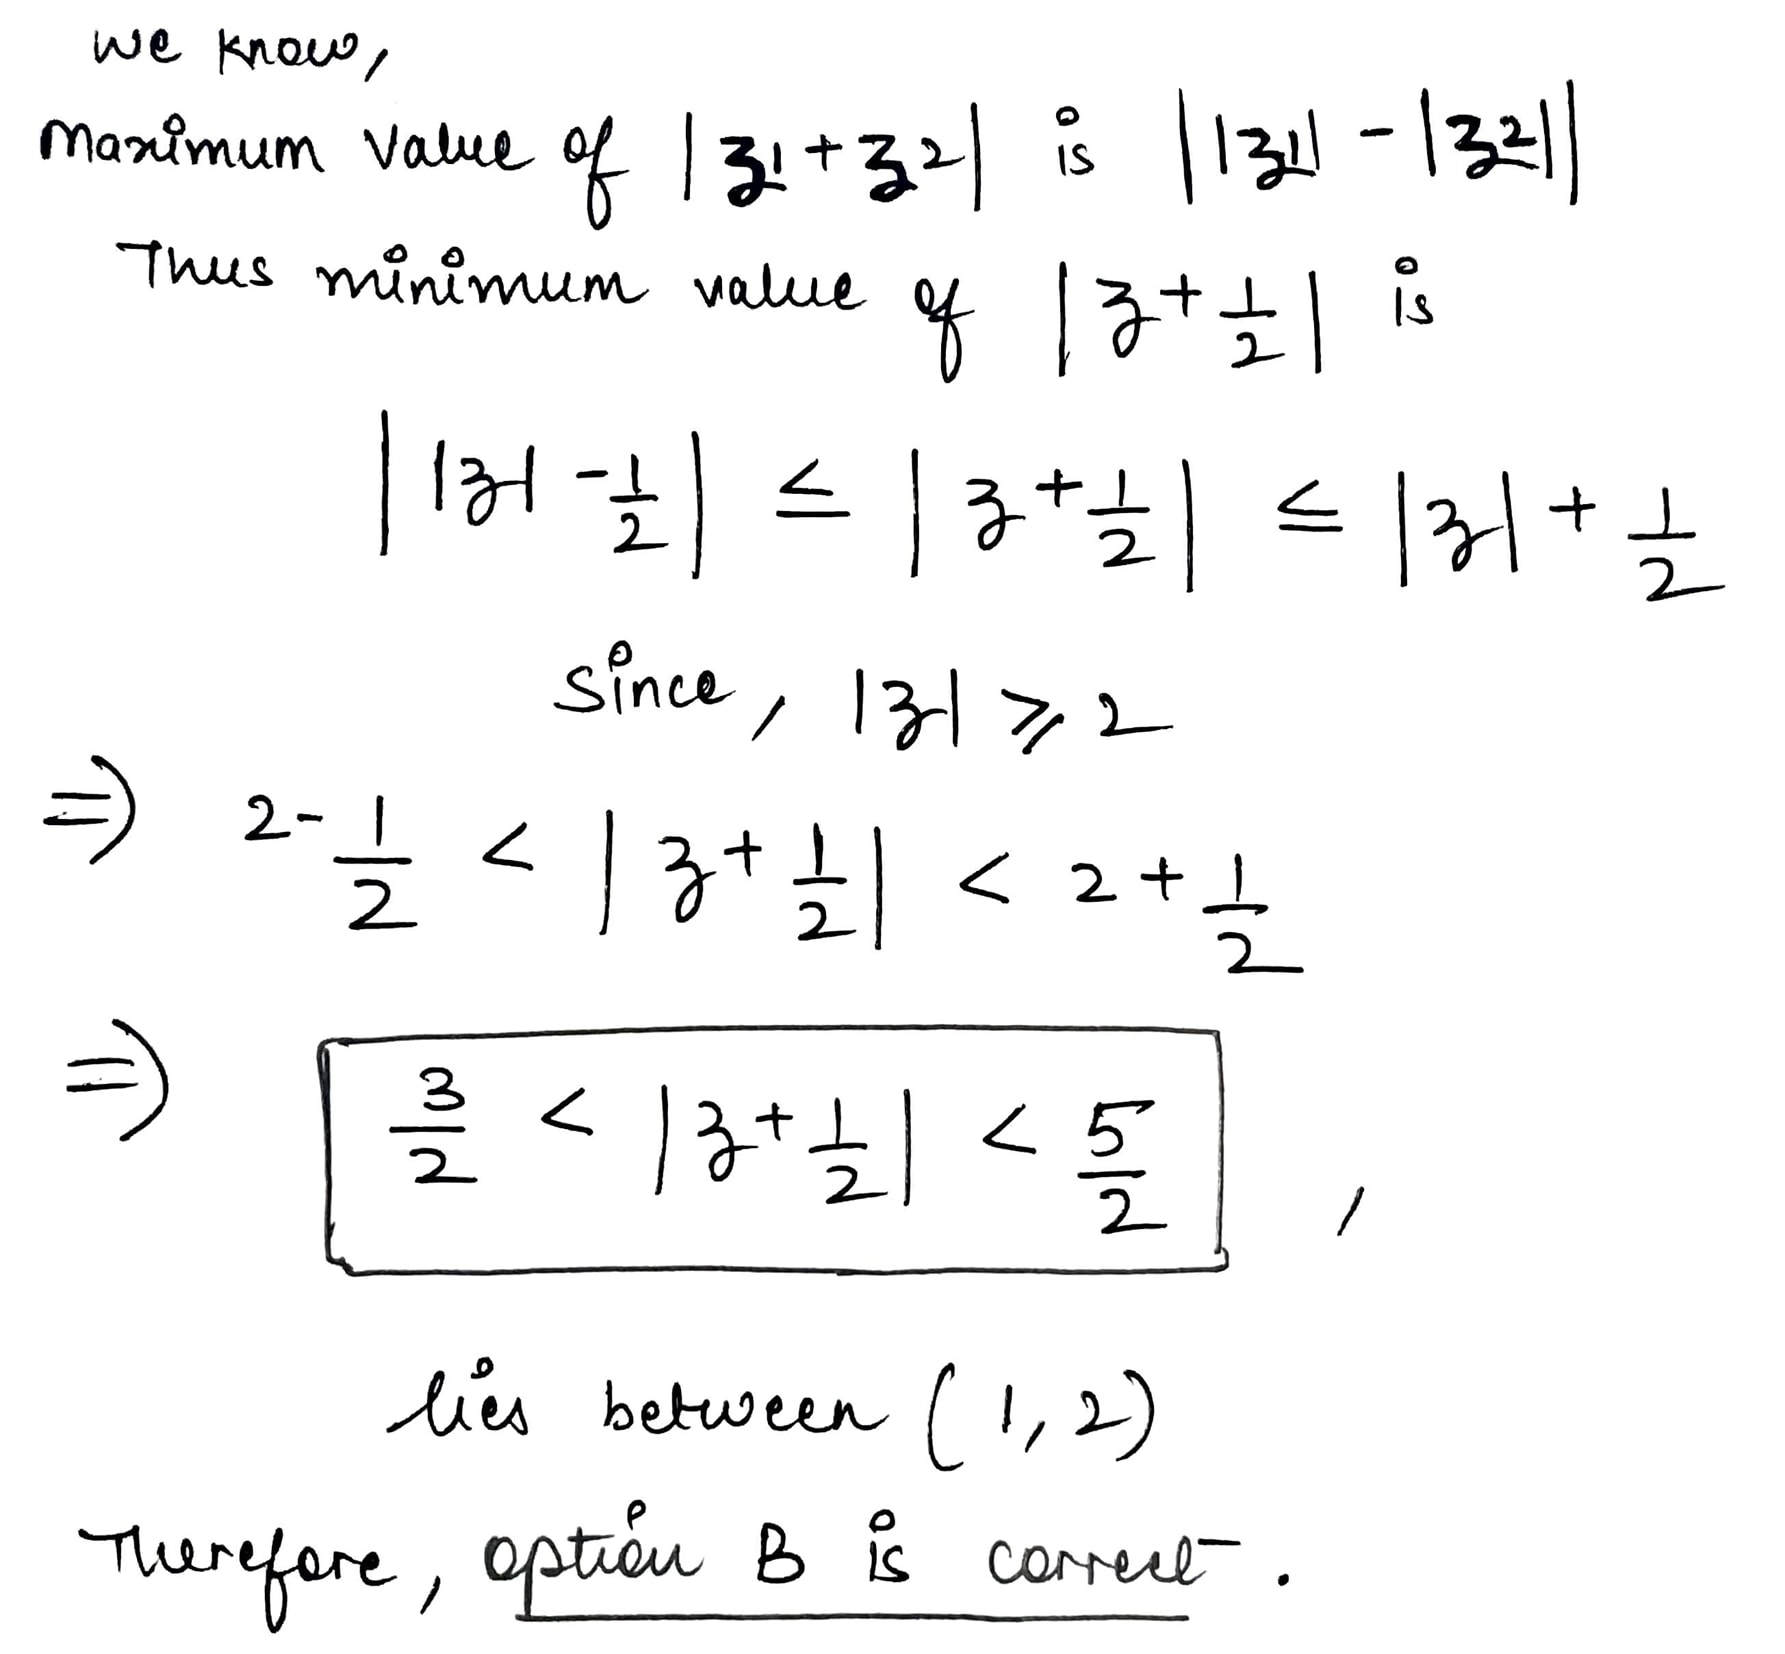 We know,
Maximum value of |z1+z2| is ||z1| - |z2||
Thus minimum value of |z + 1/2| is
||z| - 1/2| ≤ |z + 1/2| ≤ |z| + 1/2
Since, |z| ⩾ 2
⇒ 2 - 1/2 < |z + 1/2| < 2 + 1/2
⇒ 3/2 < |z + 1/2| < 5/2 ,
lies between (1, 2)
Therefore, option B is correct.